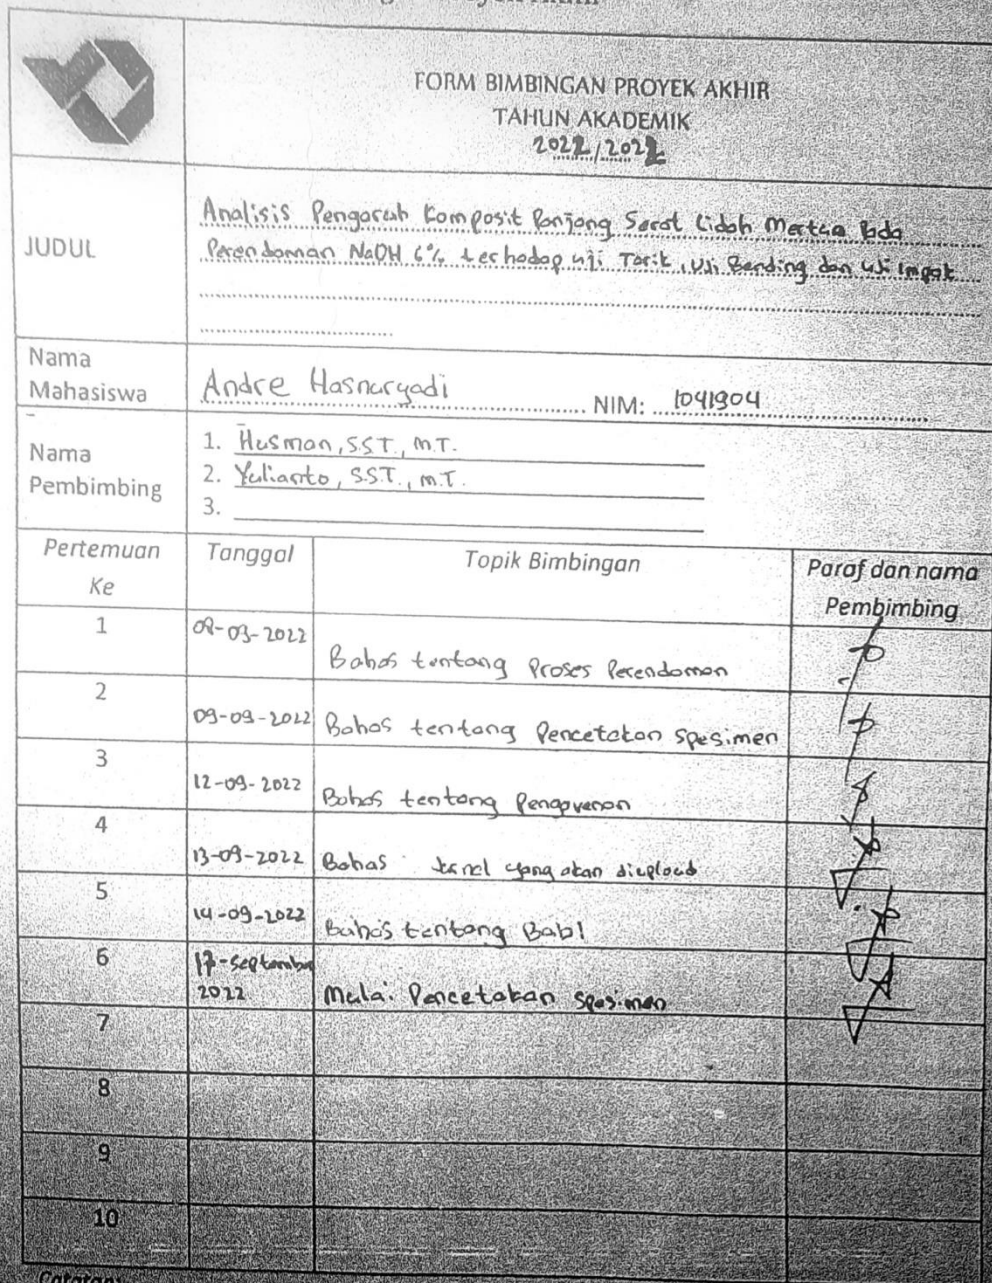 FORM BIMBINGAN PROYEK AKHIR
TAHUN AKADEMIK
2022/2022
JUDUL
Analisis Pengaruh Komposit Panjang Serat Lidah Mertua Pada
Perendaman NaOH 6% terhadap uji Tarik, Uji Bending dan uji Impak
Nama
Mahasiswa
Andre Hasnuryadi NIM: 1041904
Nama
Pembimbing
1. Husman, S.S.T., M.T.
2. Yulianto, S.S.T., M.T.
3.
Pertemuan
Ke
Tanggal
Topik Bimbingan
Paraf dan nama
Pembimbing
1 08-03-2022 Bahas tentang Proses Perendaman
2 09-09-2022 Bahas tentang Pencetakan spesimen
3 12-09-2022 Bahas tentang Pengovenan
4 13-09-2022 Bahas yang akan diupload
5 14-09-2022 Bahas tentang Bab 1
6 17-September 2022 Mulai Pencetakan spesimen
7
8
9
10
Catatan: